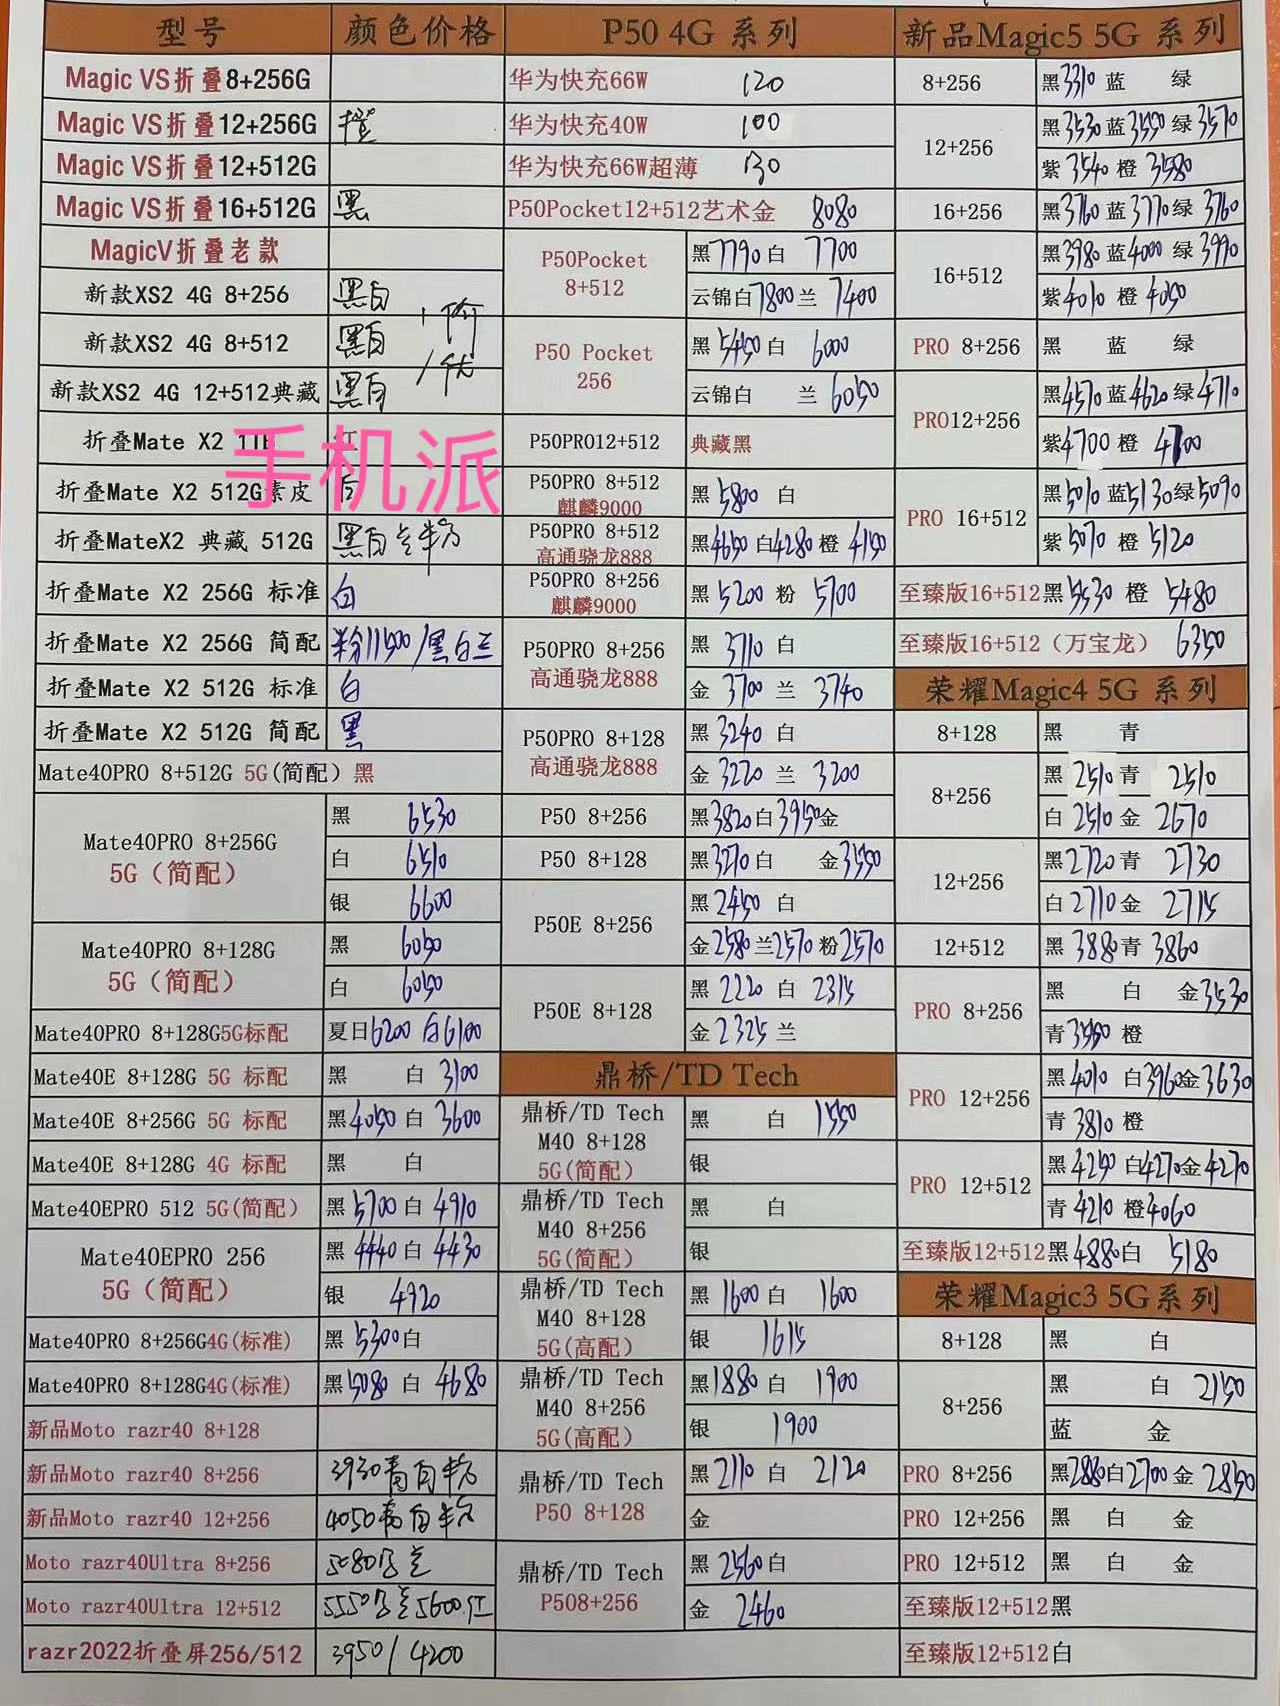 型号 颜色价格
Magic VS折叠8+256G
Magic VS折叠12+256G 橙
Magic VS折叠12+512G
Magic VS折叠16+512G 黑
MagicV折叠老款
新款XS2 4G 8+256 黑白
新款XS2 4G 8+512 黑白
新款XS2 4G 12+512典藏 黑白
折叠Mate X2 1TB 红
手机派
折叠Mate X2 512G素皮
折叠MateX2 典藏 512G 黑白
折叠Mate X2 256G 标准 白
折叠Mate X2 256G 简配 粉11500/黑白兰
折叠Mate X2 512G 标准 白
折叠Mate X2 512G 简配 黑
Mate40PRO 8+512G 5G(简配) 黑
Mate40PRO 8+256G
5G（简配）
黑 6530
白 6510
银 6600
Mate40PRO 8+128G
5G（简配）
黑 6050
白 6050
Mate40PRO 8+128G5G标配 夏日6200 白6100
Mate40E 8+128G 5G 标配 黑 白 3100
Mate40E 8+256G 5G 标配 黑4050 白 3600
Mate40E 8+128G 4G 标配 黑 白
Mate40EPRO 512 5G(简配) 黑 5700 白 4910
Mate40EPRO 256
5G（简配）
黑 4440 白 4430
银 4920
Mate40PRO 8+256G4G(标准) 黑 5300 白
Mate40PRO 8+128G4G(标准) 黑5080 白 4680
新品Moto razr40 8+128
新品Moto razr40 8+256 3930青白粉
新品Moto razr40 12+256 4050青白粉
Moto razr40Ultra 8+256 5080
Moto razr40Ultra 12+512 5550 5600红
razr2022折叠屏256/512 3950/4200
P50 4G 系列
华为快充66W 120
华为快充40W 100
华为快充66W超薄 130
P50Pocket12+512艺术金 8080
P50Pocket
8+512
黑 7790 白 7700
云锦白 7800 兰 7400
P50 Pocket
256
黑 5450 白 6000
云锦白 兰 6050
P50PRO12+512 典藏黑
P50PRO 8+512
麒麟9000
黑 5800 白
P50PRO 8+512
高通骁龙888
黑4650 白4280 橙 4150
P50PRO 8+256
麒麟9000
黑 5200 粉 5700
P50PRO 8+256
高通骁龙888
黑 3710 白
金 3700 兰 3740
P50PRO 8+128
高通骁龙888
黑 3240 白
金 3220 兰 3200
P50 8+256 黑3820白3950金
P50 8+128 黑3270白 金3550
P50E 8+256
黑2450 白
金2580兰2570粉2570
P50E 8+128
黑 2220 白 2315
金 2325 兰
鼎桥/TD Tech
鼎桥/TD Tech
M40 8+128
5G(简配)
黑 白 1550
银
鼎桥/TD Tech
M40 8+256
5G(简配)
黑 白
银
鼎桥/TD Tech
M40 8+128
5G(高配)
黑 1600 白 1600
银 1615
鼎桥/TD Tech
M40 8+256
5G(高配)
黑1880 白 1900
银 1900
鼎桥/TD Tech
P50 8+128
黑2110 白 2120
金
鼎桥/TD Tech
P508+256
黑 2560 白
金 2460
新品Magic5 5G 系列
8+256 黑3310 蓝 绿
12+256
黑3530蓝3550绿3570
紫 3540 橙 3580
16+256 黑3760 蓝3770绿 3760
16+512
黑3980蓝4000 绿3990
紫4010 橙 4050
PRO 8+256 黑 蓝 绿
PRO12+256
黑4570蓝4620绿4710
紫4700 橙 4700
PRO 16+512
黑5010蓝5130绿5090
紫 5070 橙 5120
至臻版16+512黑5530 橙 5480
至臻版16+512（万宝龙） 6350
荣耀Magic4 5G 系列
8+128 黑 青
8+256
黑 2510青 2510
白 2510金 2670
12+256
黑2720青 2730
白2710金 2715
12+512 黑 3880青 3860
PRO 8+256
黑 白 金3530
青3550 橙
PRO 12+256
黑4010 白3960金3630
青 3810 橙
PRO 12+512
黑4250 白4270金4270
青4210 橙4060
至臻版12+512黑4880白 5180
荣耀Magic3 5G系列
8+128 黑 白
8+256
黑 白 2150
蓝 金
PRO 8+256 黑2880白2700 金 2850
PRO 12+256 黑 白 金
PRO 12+512 黑 白 金
至臻版12+512黑
至臻版12+512白